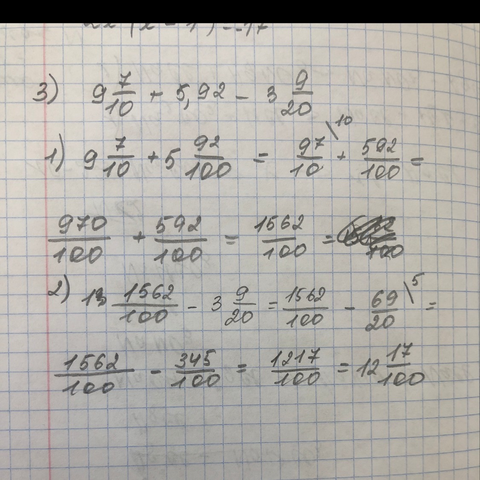 3) 9 7/10 + 5,92 - 3 9/20
1) 9 7/10 + 5 92/100 = 97/10 \10 + 592/100 =
970/100 + 592/100 = 1562/100 =
2) 1562/100 - 3 9/20 = 1562/100 - 69/20 \5 =
1562/100 - 345/100 = 1217/100 = 12 17/100